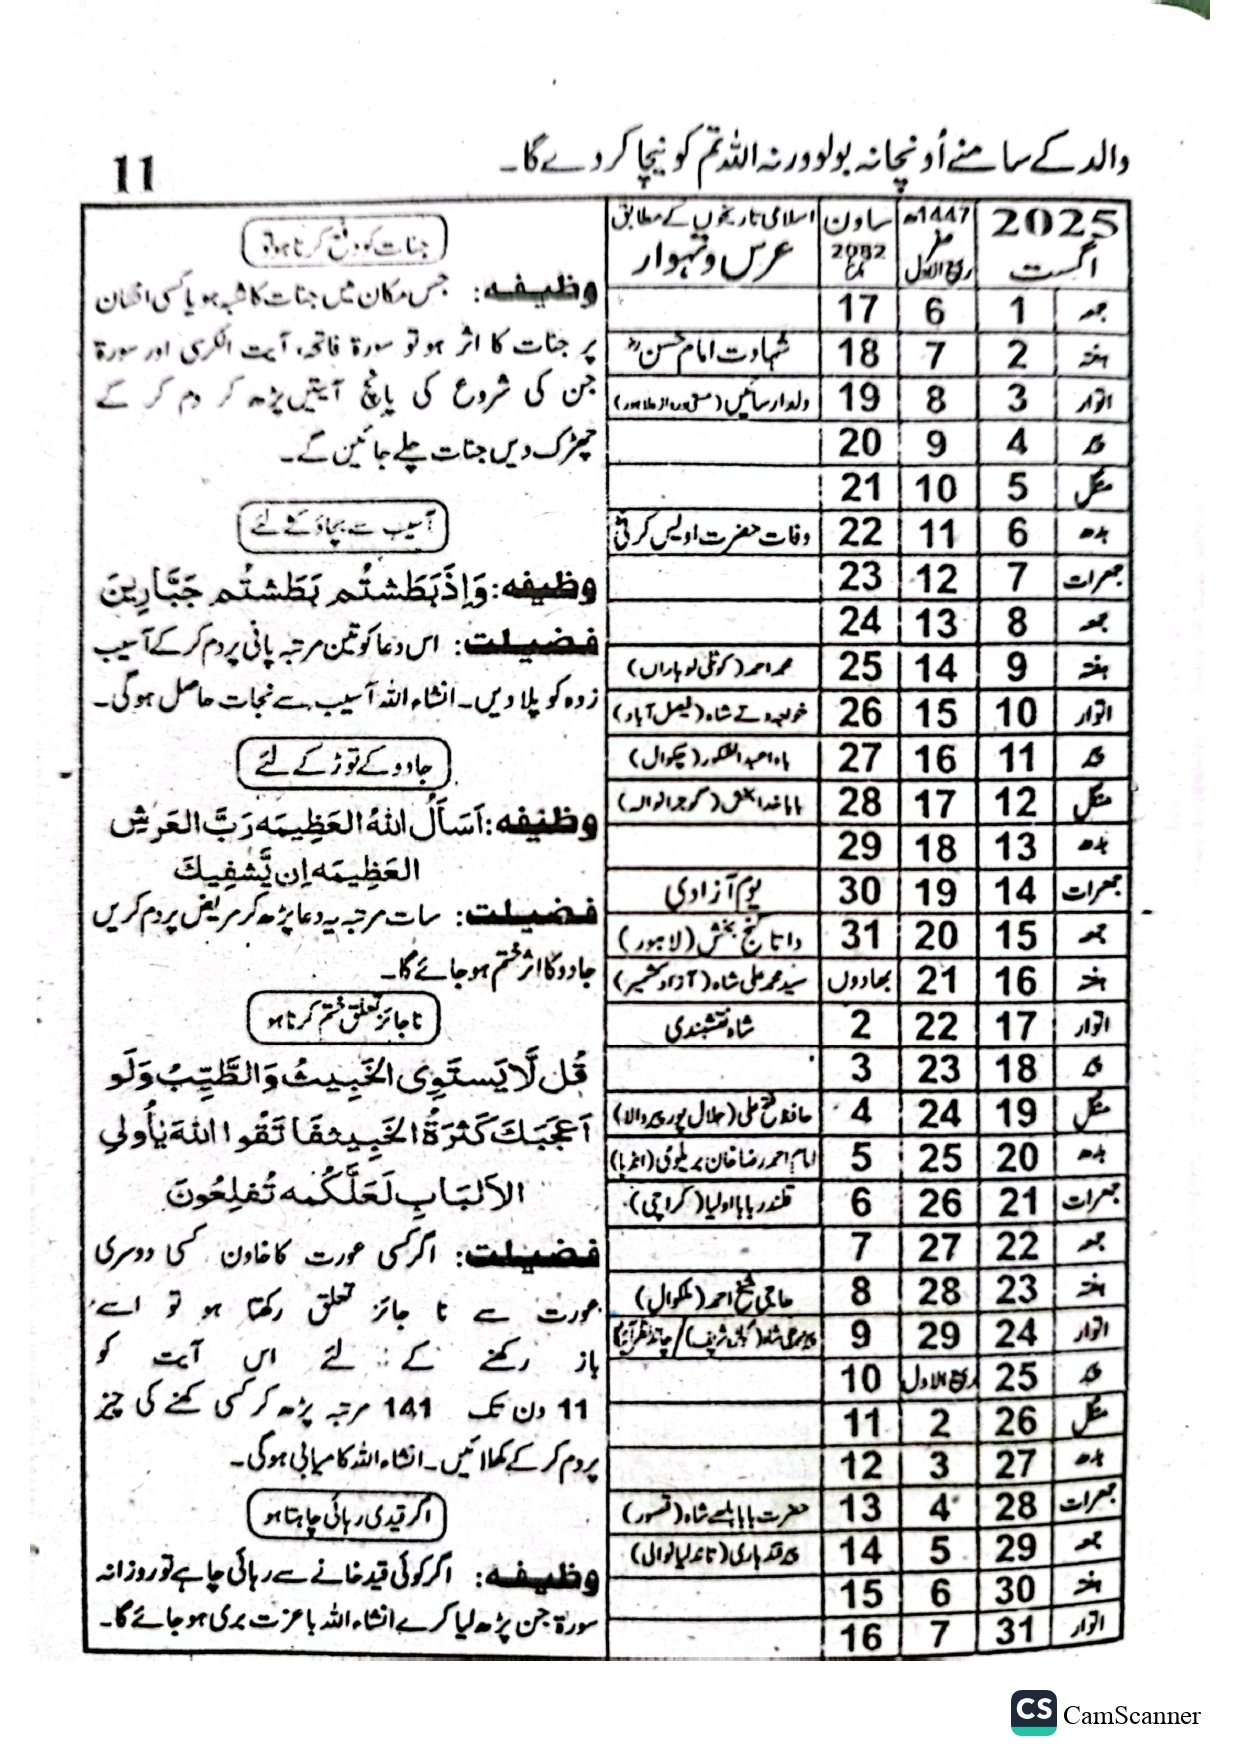 والد کے سامنے اُونچا نہ بولو ورنہ اللہ تم کو نیچا کر دے گا۔
11
2025 اگست
1447ھ صفر ربیع الاول
ساون 2082
اسلامی تاریخوں کے مطابق عرس و تہوار
جمعہ 1 6 17
ہفتہ 2 7 18 شہادت امام حسنؓ
اتوار 3 8 19 ولدار سائیں
پیر 4 9 20
منگل 5 10 21
بدھ 6 11 22 وفات حضرت اویس کرنی
جمعرات 7 12 23
جمعہ 8 13 24
ہفتہ 9 14 25 محمد احمد (کوٹلی لوہاراں)
اتوار 10 15 26 شاہ (فیصل آباد)
پیر 11 16 27 (چکوال)
منگل 12 17 28 بابا خدا بخش (گوجرانوالہ)
بدھ 13 18 29
جمعرات 14 19 30 یوم آزادی
جمعہ 15 20 31 داتا گنج بخش (لاہور)
ہفتہ 16 21 بھادوں سید محمد علی شاہ (آزاد کشمیر)
اتوار 17 22 2 شاہ نقشبندی
پیر 18 23 3
منگل 19 24 4 حافظ فتح علی (جلال پور پیر والا)
بدھ 20 25 5 امام احمد رضا خان بریلوی (انڈیا)
جمعرات 21 26 6 قلندر بابا اولیا (کراچی)
جمعہ 22 27 7
ہفتہ 23 28 8 حاجی شیخ احمد
اتوار 24 29 9 چاند نظر آئیگا
پیر 25 ربیع الاول 10
منگل 26 2 11
بدھ 27 3 12
جمعرات 28 4 13 حضرت بابا بلھے شاہ (قصور)
جمعہ 29 5 14 پیر قندہاری
ہفتہ 30 6 15
اتوار 31 7 16
جنات کو دفع کرنا ہو تو
وظیفہ: جس مکان میں جنات کا شبہ ہو یا کسی انسان
پر جنات کا اثر ہو تو سورۃ فاتحہ، آیت الکرسی اور سورۃ
جن کی شروع کی پانچ آیتیں پڑھ کر دم کر کے
چھڑک دیں جنات چلے جائیں گے۔
آسیب سے بچاؤ کے لئے
وظیفہ: وَاِذَ بَطَشتُم بَطَشتُم جَبَّارِینَ
فضیلت: اس دعا کو تین مرتبہ پانی پر دم کر کے آسیب
زدہ کو پلا دیں۔ انشاء اللہ آسیب سے نجات حاصل ہو گی۔
جادو کے توڑ کے لئے
وظیفہ: اَسَأَلُ اللہُ العَظِیمَہ رَبَّ العَرشِ
العَظِیمَہ اِن یَّشفِیکَ
فضیلت: سات مرتبہ یہ دعا پڑھ کر مریض پر دم کریں
جادو کا اثر ختم ہو جائے گا۔
ناجائز تعلق ختم کرنا ہو
قُل لَّا یَستَوِی الخَبِیثُ وَالطَّیِّبُ وَلَو
اَعجَبَکَ کَثرَۃُ الخَبِیثِ فَاتَقُوا اللہَ یٰأُولِی
الاَلبَابِ لَعَلَّکُمہ تُفلِحُونَ
فضیلت: اگر کسی عورت کا خاون کسی دوسری
عورت سے نا جائز تعلق رکھتا ہو تو اسے
باز رکھنے کے لئے اس آیت کو
11 دن تک 141 مرتبہ پڑھ کر کسی کھنے کی چیز
پر دم کر کے کھلائیں۔ انشاء اللہ کامیابی ہو گی۔
اگر قیدی رہائی چاہتا ہو
وظیفہ: اگر کوئی قید خانے سے رہائی چاہے تو روزانہ
سورۃ جن پڑھ لیا کرے انشاء اللہ با عزت بری ہو جائے گا۔
CS CamScanner